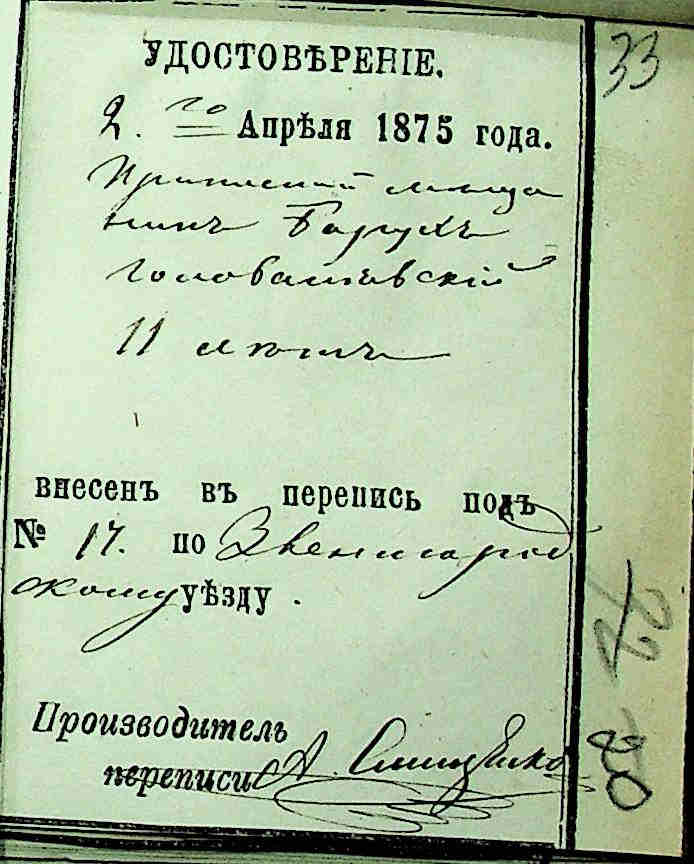 УДОСТОВѢРЕНІЕ.
33
2. го Апрѣля 1875 года.
мѣща
нинъ Борухъ
Головатевскій
11 лѣтъ
внесенъ въ перепись подъ
№ 17. по Звенигород
скому уѣзду.
Производитель
переписи А.